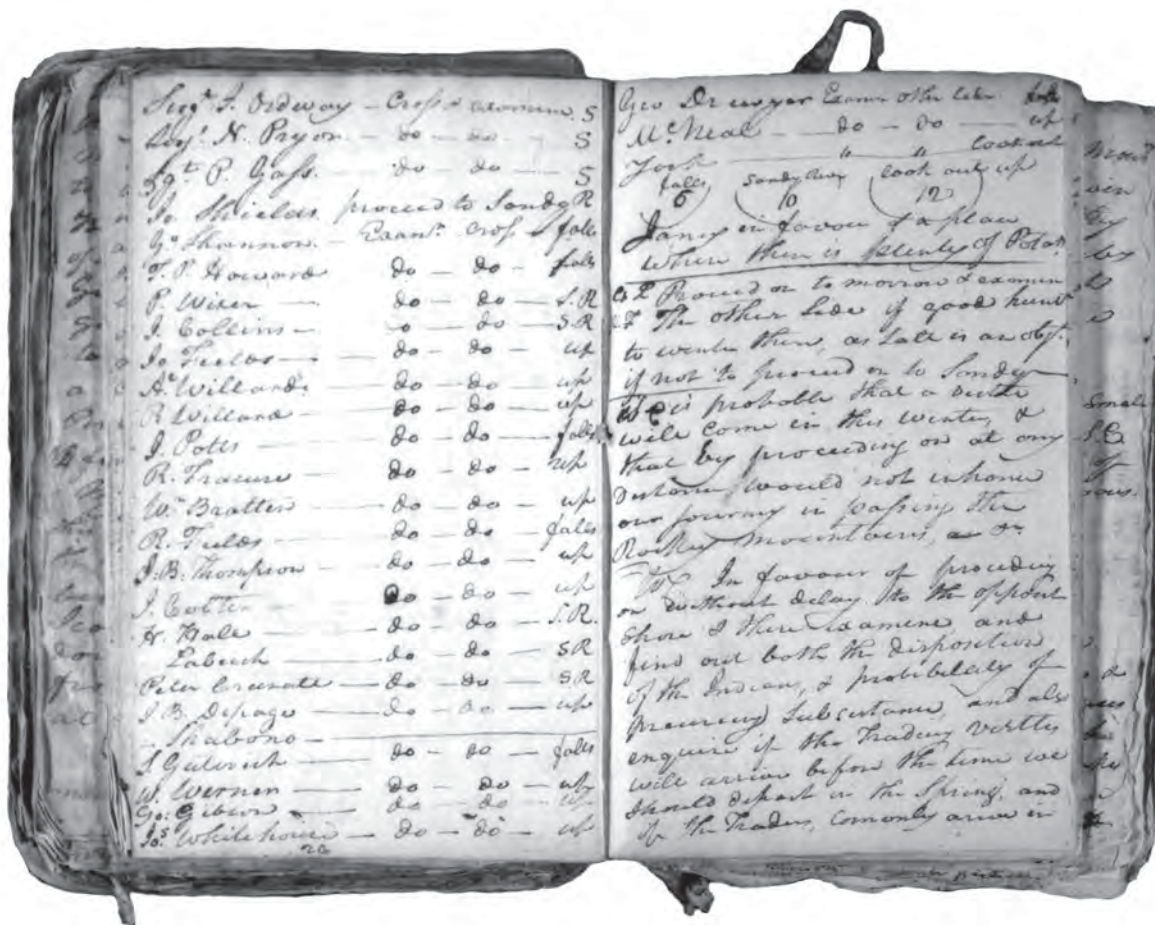 Sergt J. Ordway — Cross & examine S
Serjt N. Pryor — do — do — S
Sgt P. Gass — do — do — S
Jo. Shields proceed to Sandy R
Go. Shannon — Examn. Cross & falls
T. P. Howard do — do — falls
P. Wiser — do — do — S.R
J. Collins — o — do — S R
Jo Fields — do — do — up
Al. Willard — do — do — up
R Willard — do — do — up
J. Potts — do — do — falls
R. Frasure — do — do — up
Wm Bratten — do — do — up
R. Fields — do — do — falls
J. B. Thompson — do — do — up
J. Colter — do — do — up
H. Hall — do — do — S.R.
Labeech — do — do — S R
Peter Crusatte — do — do — S R
J. B. Depage — do — do — up
Shabono —
S Guterich do — do — falls
W. Werner — do — do — up
Go: Gibson — do — do — up
Jos. Whitehouse — do — do — up
26
Geo Drewyer Examn other side falls
McNeal — do — do — up
York — " " lookout
falls Sandy River look out up
6 10 12
Janey in favour of a place
where there is plenty of Potas.
Proceed on to morrow & examine
The other side if good hunt
to winter there, as Salt is an obt.
if not to proceed on to Sandy
is probable that a
will come in this winter, &
that by proceeding on at any
distance would not inhance
our journey in passing the
Rockey mountains, &c
In favour of proceding
on without delay to the opposit
Shore & there examine and
find out both the disposition
of the Indians, & probibility of
precureing Subsistance, and also
enquire if the Tradeing vestles
will arrive before the time we
should depart in the Spring, and
if the Traders, comonly arive in